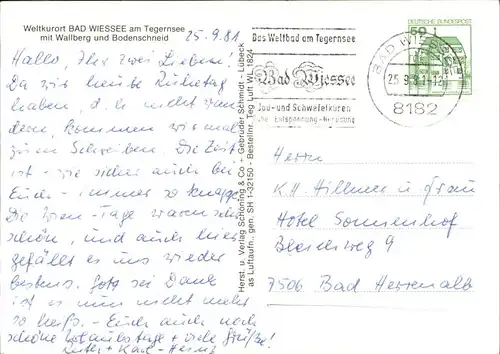 Weltkurort BAD WIESSEE am Tegernsee
mit Wallberg und Bodenschneid
25.9.81
Hallo, Ihr zwei Lieben!
Da wir heute Ruhetag
haben, d.h. nicht wan-
dern, kommen wir mal
zum Schreiben. Die Zeit
ist - wie sicher auch bei
Euch - immer so knapp.
Die Wien-Tage waren sehr
schön, und auch hier
gefällt es uns wieder
bestens. Gott sei Dank
ist es nun nicht mehr
so heiß. - Euch auch noch
schöne Urlaubstage + viele Grüße!
Karl-Heinz
Herst. u. Verlag Schöning & Co + Gebrüder Schmidt, Lübeck
as Luftaufn., gen. SH 1-32150 - Bestellnr. Teg Luft WL 1824
Das Weltbad am Tegernsee
Bad Wiessee
Jod- und Schwefelkuren
Entspannung - Erholung
BAD WIESSEE
25.9.81-12
8182
DEUTSCHE BUNDESPOST
50
Herrn
K.H. Hillmer u. Frau
Hotel Sonnenhof
Bleichweg 9
7506 Bad Herrenalb